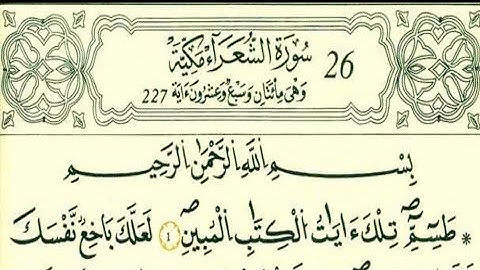 سُورَةُ الشُّعَرَآءِ مَكِّيَّة 26
وَهْيَ مِائتَانِ وَسَبْعٌ وَعِشْرُونَ ءَايَة 227
بِسْمِ اللَّهِ الرَّحْمَٰنِ الرَّحِيمِ
طَسِمِّٓ تِلْكَ ءَايَٰتُ الْكِتَٰبِ الْمُبِينِ 1 لَعَلَّكَ بَٰخِعٌ نَّفْسَكَ *